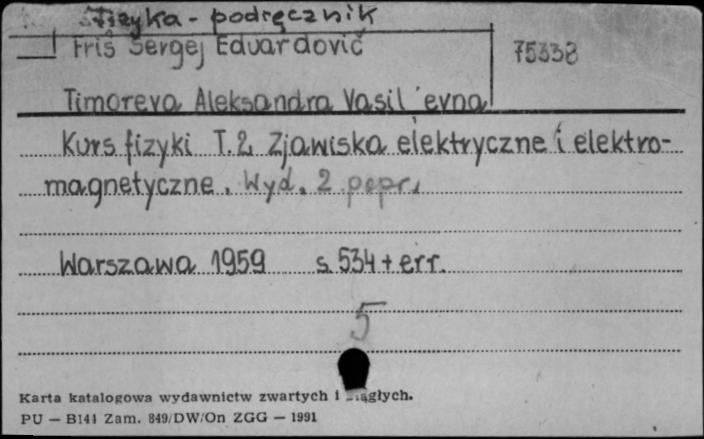 Fizyka - podręcznik
Friš Sergej Èduardovič 75338
Timoreva Aleksandra Vasil'evna
Kurs fizyki T.2. Zjawiska elektryczne i elektro-
magnetyczne. Wyd. 2 popr.
Warszawa 1959 s. 534 + err.
5
Karta katalogowa wydawnictw zwartych i ciągłych.
PU — B141 Zam. 849/DW/On ZGG — 1991